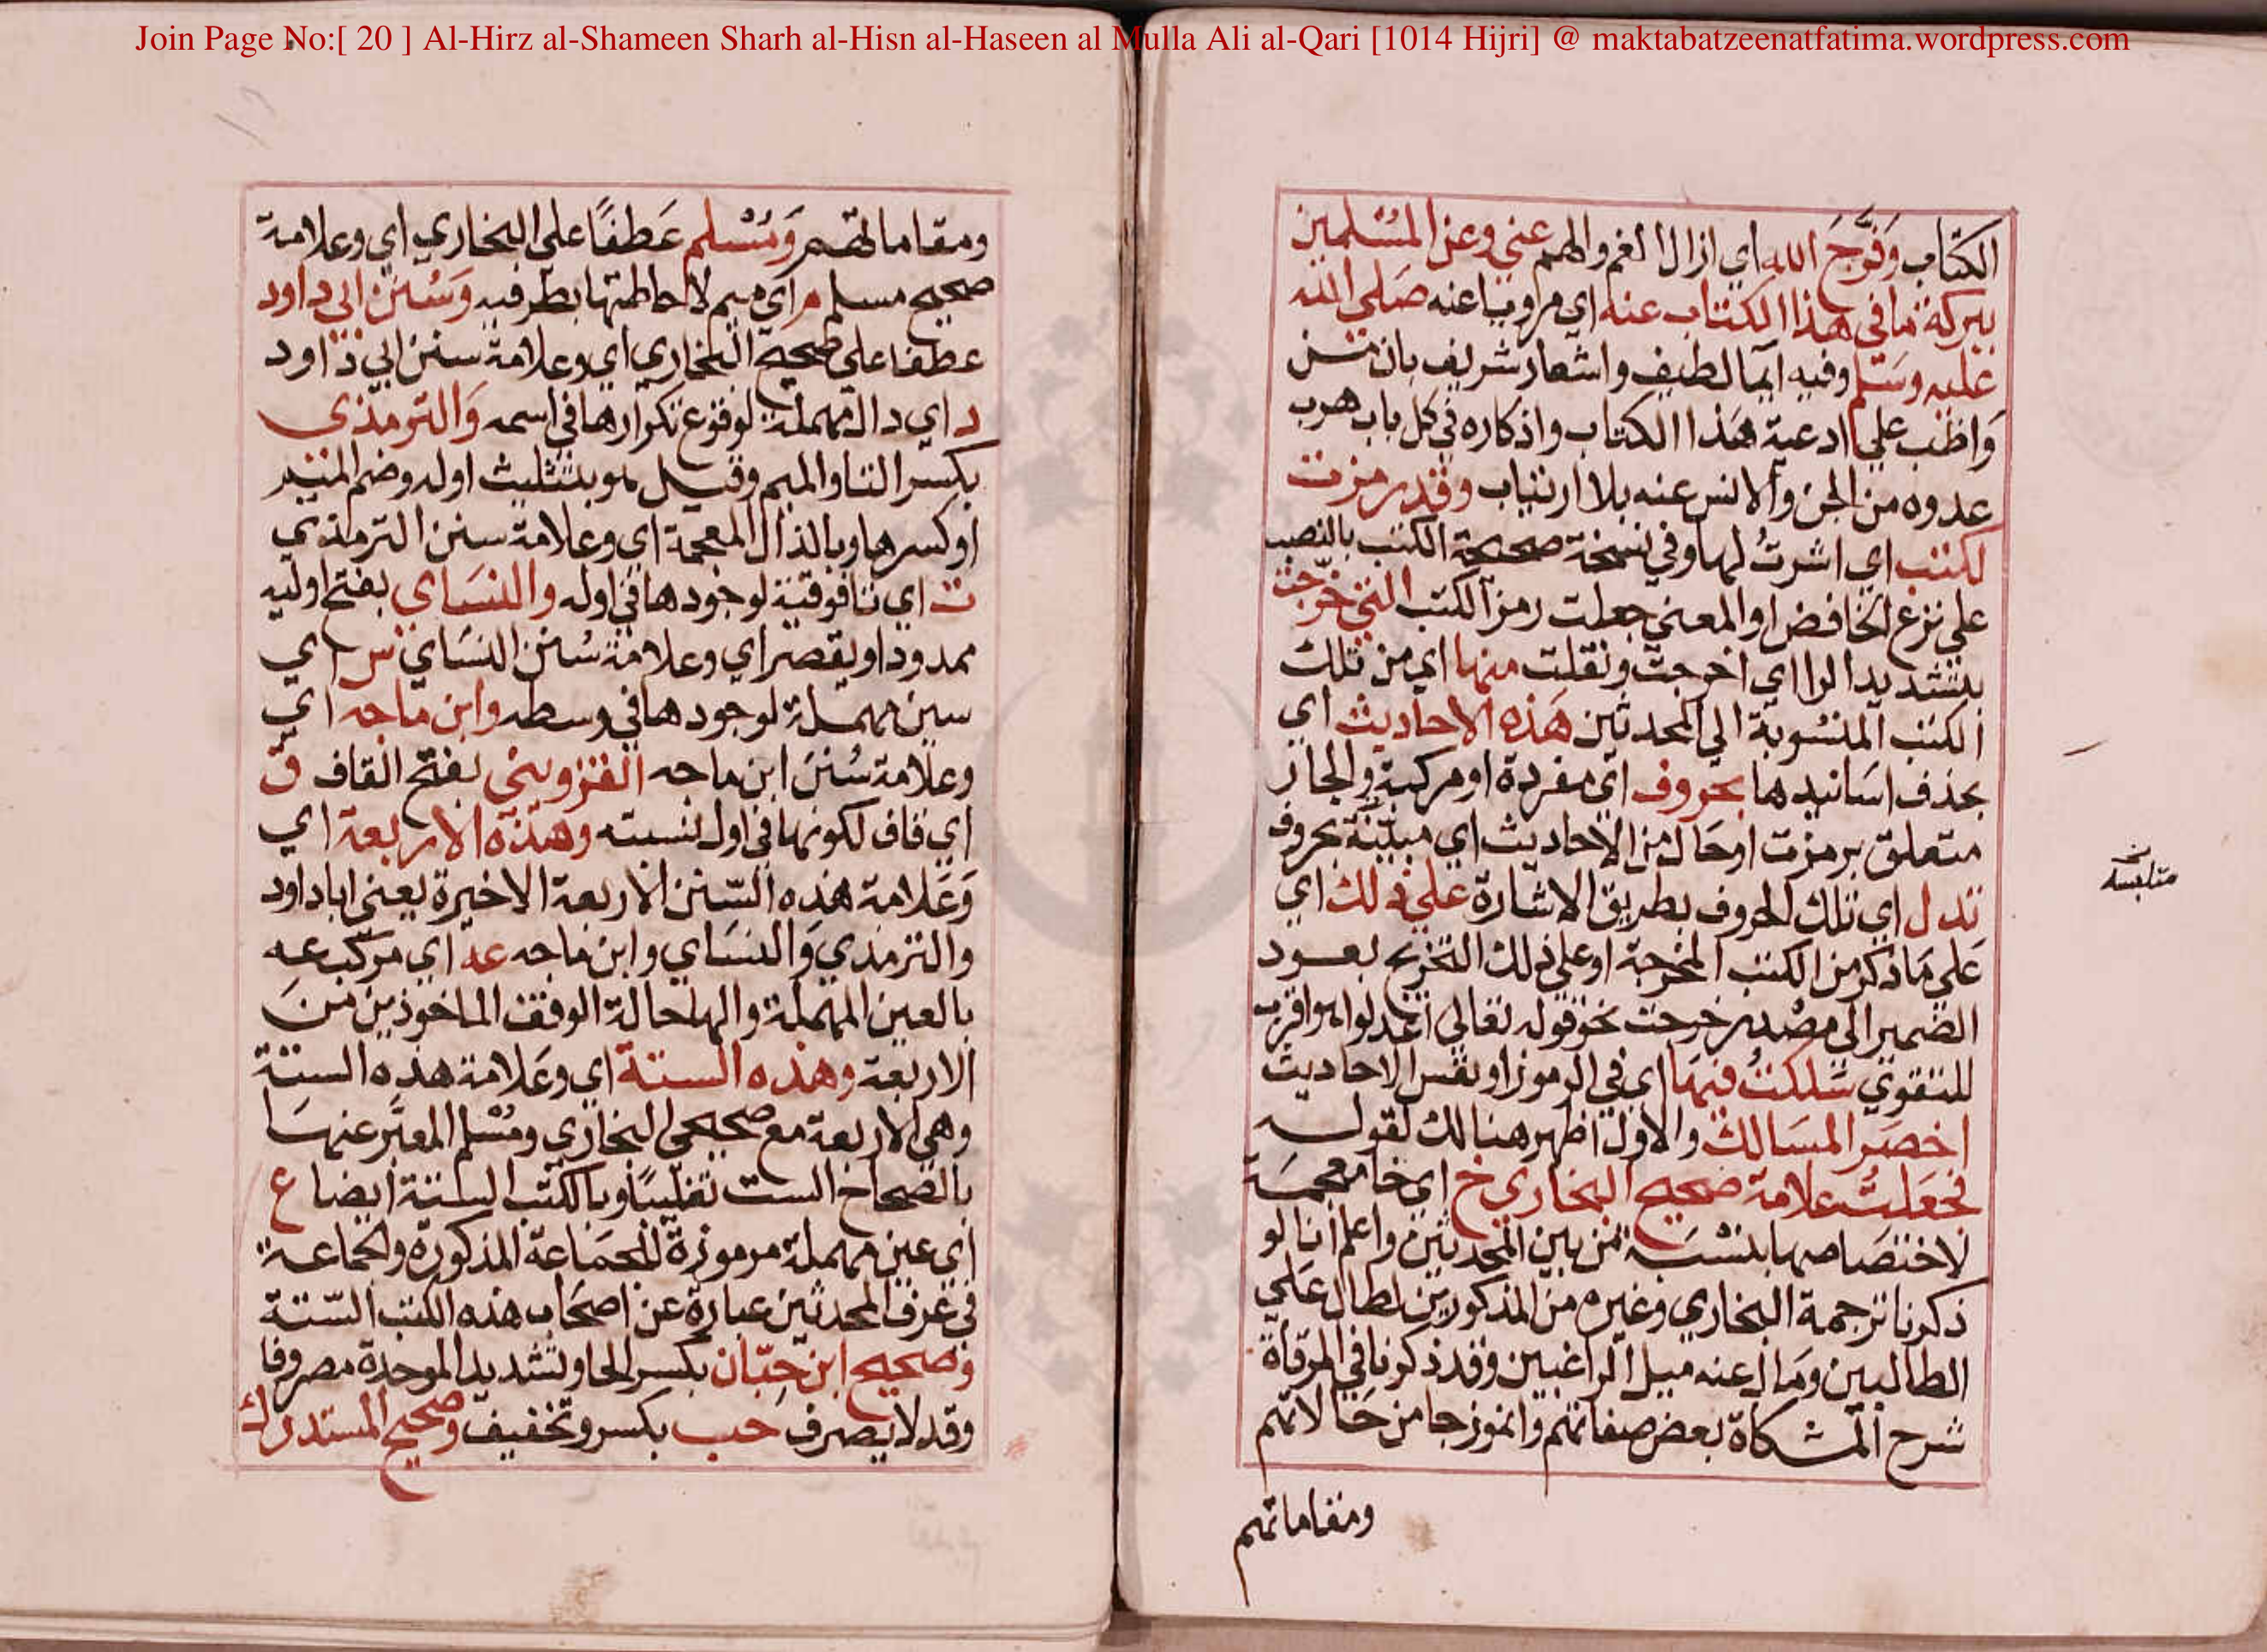 Join Page No:[ 20 ] Al-Hirz al-Shameen Sharh al-Hisn al-Haseen al Mulla Ali al-Qari [1014 Hijri] @ maktabatzeenatfatima.wordpress.com
الكتاب وَفَرَّجَ الله اي ازال الغم والهم عني وعن المسْلمين
ببركة مَا في هذا الكتاب عنه اي مرويا عنه صَلى الله
عَليه وسَلم وفيه ايما لطيف واشعار شريف بان من
وَاظب علي ادعية هَذا الكتاب واذكاره في كل باب هرب
عدوه من الجن والانس عنه بلا ارتياب وقد رمزت
لكتب اي اشرتُ لها وفي نسخة صحيحة الكتب بالنصب
علي نزع الخافض او المعني جعلت رمز الكتب التي خَرَّجتُ
بتشديد الرا اي اخرجت ونقلت منها اي من تلك
الكتب المنسُوبة الي المحدثين هَذه الاحاديث اي
بحذف اسَانيدها بحروف اي مفردة او مركبة والجار
متعلق برمزت او حَال من الاحاديث اي مبيّنَة بحروف
تدل اي تلك الحروف بطريق الاشارة عَلي ذلك اي
عَلي مَا ذكر من الكتب المخرجة او علي ذلك التخريج بعود
الضمير الي مصْدر خرجت نحو قوله تعالي اعْدلوا هو اقرب
للتقوي سَلكتُ فيهَا اي في الرموز او نفس الاحاديث
اخصَر المسَالك والاول اظهر هنالك لقوله
فجعَلتُ علامة صحيح البخاري خ اي خا معجمَة
لاختصَاصها بنسْبَته من بين المحدثين واعلم انا لو
ذكرنا ترجمة البخاري وغيره من المذكورين لطال عَلي
الطالبين ومَال عنه ميل الراغبين وقد ذكرنا في المرقاة
شرح المشكاة بعض صفاتهم وانموزجا من حَالاتهم
ومقاماتهم
ومقاماتهم وَمُسْلم عَطفًا علي البخاري اي وعلامة
صحيح مسلم م اي ميم لاحاطتها بطرفيه وَسُنن ابي داود
عطفا علي صحيح البخاري اي وعلامة سنن ابي دَاود
د اي دال مهملة لوقوع تكرارها في اسمه وَالترمذي
بكسر التا والميم وقيل هو بتثليث اوله وضم الميم
او كسرها وبالذال المعجمة اي وعلامة سنن الترمذي
ت اي تا فوقية لوجودها في اوله والنسَاي بفتح اوليه
ممدودا ويقصر اي وعلامة سُنن النسَاي س اي
سين مهملة لوجودها في وسطه وابن ماجه اي
وعلامة سُننَ ابن ماجه القزويني بفتح القاف ق
اي قاف لكونها في اول نسبته وهَذه الاربعة اي
وَعَلامة هذه السّنن الاربعة الاخيرة يعني ابا داود
والترمذي وَالنسَاي وابن ماجه عه اي مركّب عه
بالعين المهملة والها حالة الوقف الماخوذين منَ
الاربعة وهذه الستة اي وعَلامة هذه الستة
وهي الاربعة مع صحيحي البخاري ومُسْلم المعبَّر عنهَا
بالصحاح الست تغليبًا وبالكتب الستة ايضا ع
اي عين مهملة مرموزة للجمَاعة المذكورة والجماعة
في عرف المحدثين عبارة عن اصحَاب هذه الكتب السّتة
وصَحيح ابن حِبّان بكسر الحا وتشديد الموحدة مصروفا
وقد لا يصرف حب بكسر وتخفيف وصحيح المستدرك